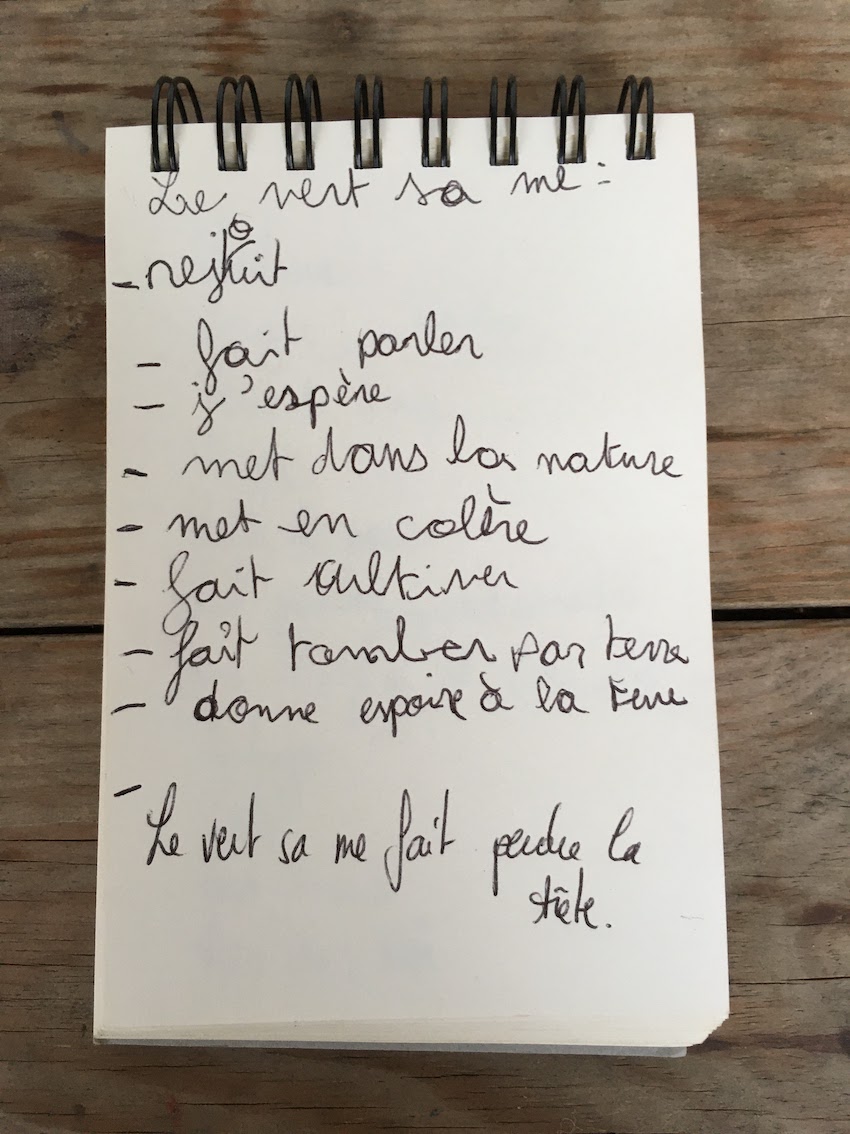 Le vert sa me :
-
- fait parler
- j'espère
- met dans la nature
- met en colère
- fait cultiver
- faît tomber par terre
- donne espoire à la terre
-
Le vert sa me fait perdre la
tête.